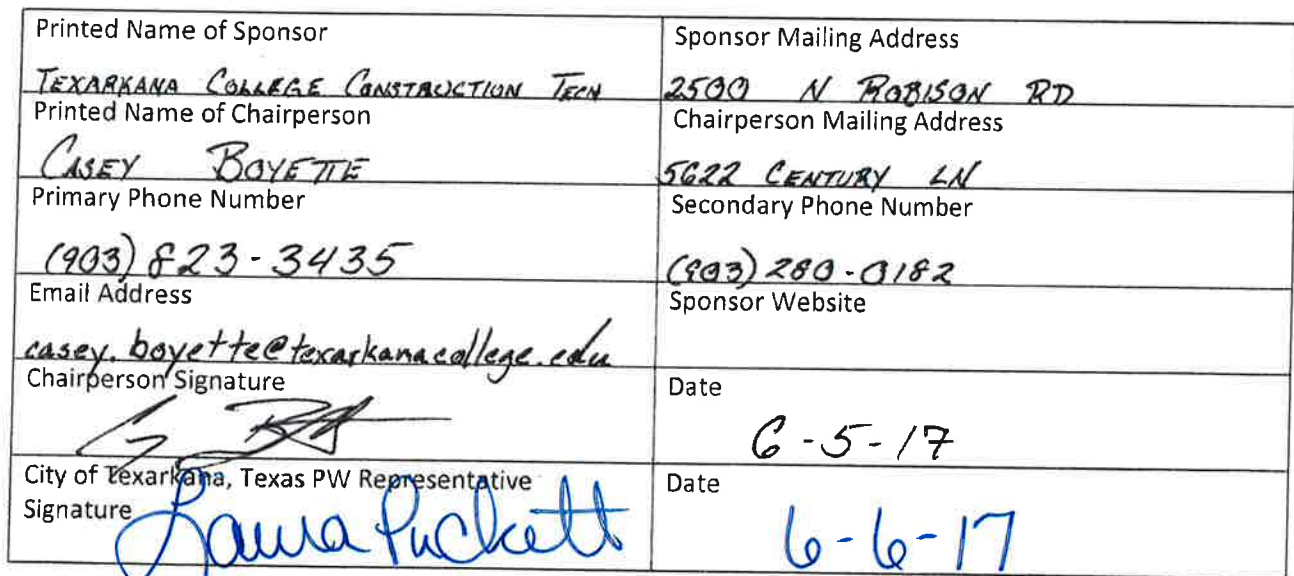 Printed Name of Sponsor
TEXARKANA COLLEGE CONSTRUCTION TECH
Sponsor Mailing Address
2500 N ROBISON RD
Printed Name of Chairperson
CASEY BOYETTE
Chairperson Mailing Address
5622 CENTURY LN
Primary Phone Number
(903) 823-3435
Secondary Phone Number
(903) 280-0182
Email Address
casey.boyette@texarkanacollege.edu
Sponsor Website
Chairperson Signature
Date
6-5-17
City of Texarkana, Texas PW Representative
Signature
Laura Puckett
Date
6-6-17